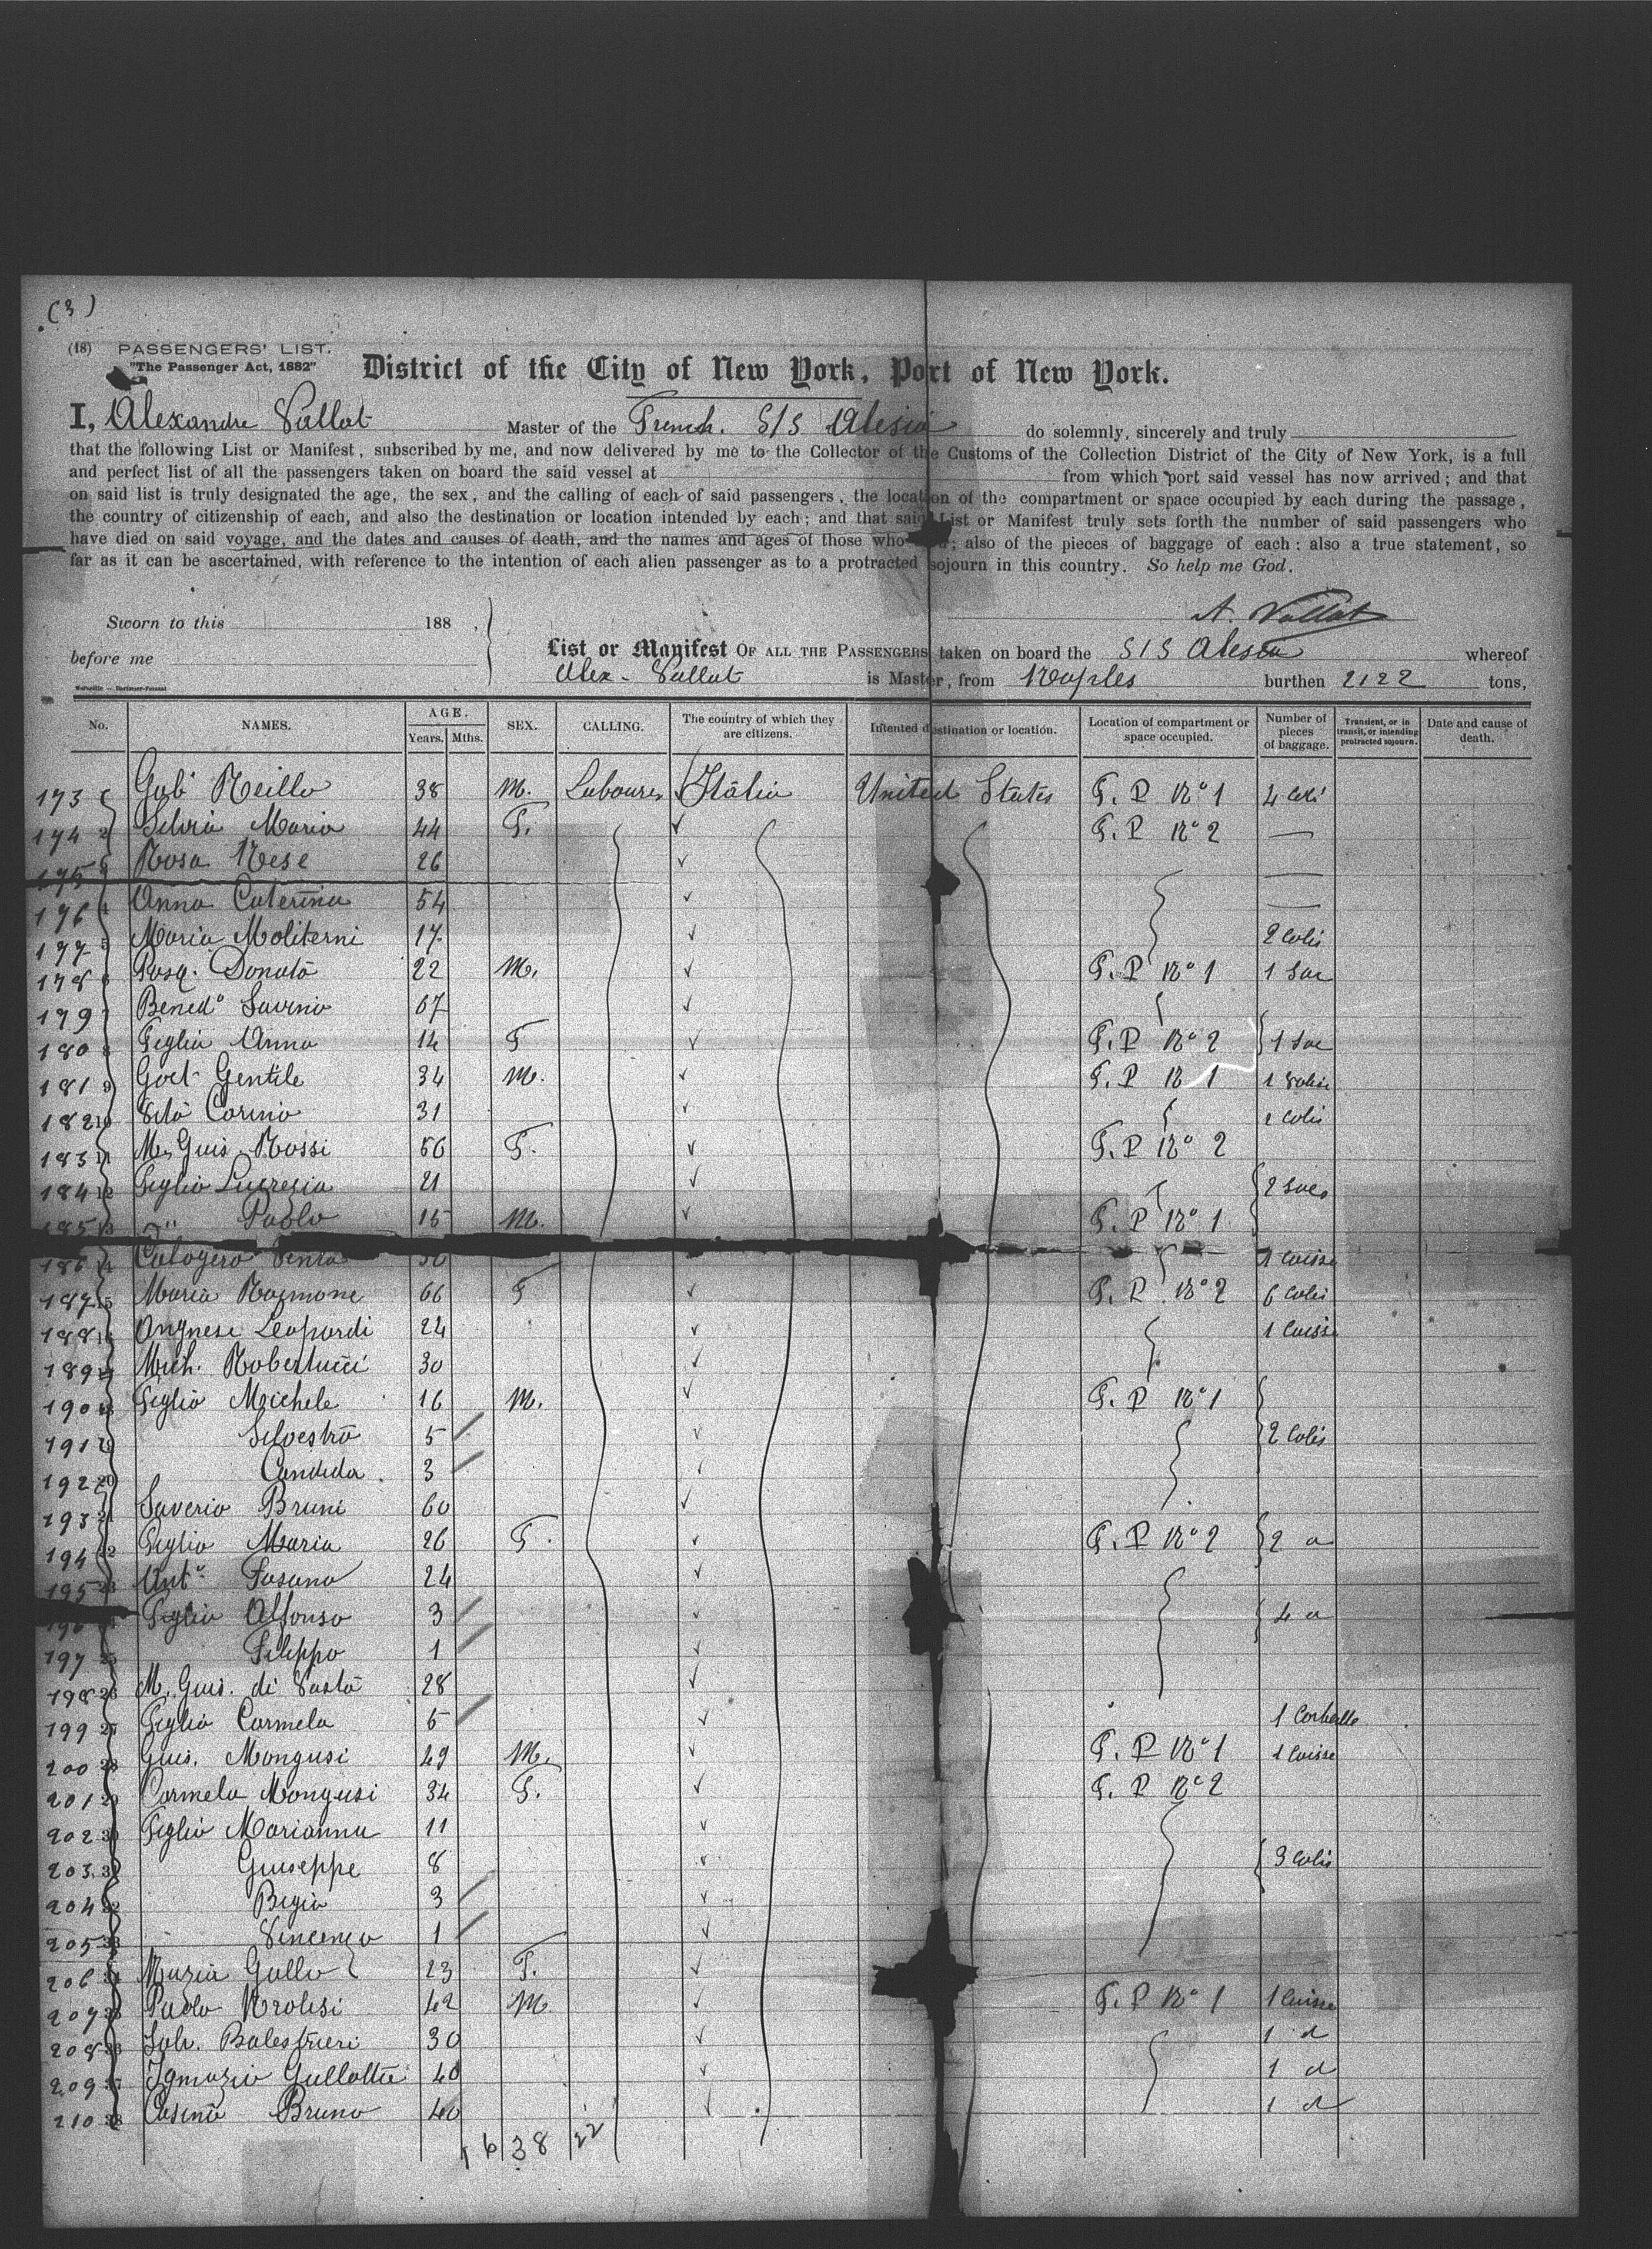 (3)
(18) PASSENGERS' LIST.
"The Passenger Act, 1882"
District of the City of New York, Port of New York.
I, Alexandre Vallat Master of the French. S/S Alesia do solemnly, sincerely and truly
that the following List or Manifest, subscribed by me, and now delivered by me to the Collector of the Customs of the Collection District of the City of New York, is a full
and perfect list of all the passengers taken on board the said vessel at from which port said vessel has now arrived; and that
on said list is truly designated the age, the sex, and the calling of each of said passengers, the location of the compartment or space occupied by each during the passage,
the country of citizenship of each, and also the destination or location intended by each; and that said List or Manifest truly sets forth the number of said passengers who
have died on said voyage, and the dates and causes of death, and the names and ages of those who ; also of the pieces of baggage of each: also a true statement, so
far as it can be ascertained, with reference to the intention of each alien passenger as to a protracted sojourn in this country. So help me God.
A. Vallat
Sworn to this 188 .
before me
List or Manifest OF ALL THE PASSENGERS taken on board the S/S Alesia whereof
Alex. Vallat is Master, from Naples burthen 2122 tons,
No. NAMES. AGE. Years. Mths. SEX. CALLING. The country of which they are citizens. Intented destination or location. Location of compartment or space occupied. Number of pieces of baggage. Transient, or in transit, or intending protracted sojourn. Date and cause of death.
173 38 M. Labourer Italia United States F. P N° 1 4
174 2 Silvia Maria 44 F. F. P N° 2 —
175 Rosa Nese 26 —
176 4 Anna Caterina 54 —
177 5 Maria Moliterni 17 2 Colis
178 6 Pasq. Donato 22 M. F. P N° 1 1 Sac
179 Bened° Saverio 67
180 8 Figlia Anna 14 F F. P N° 2 1 Sac
181 9 Gaet. Gentile 34 M. F. P N 1 1 Valise
182 10 Vito Carino 31 Colis
183 11 M. Guis. Rossi 56 F. F. P N° 2
184 12 Figlia Lucrezia 21 2 Sacs
185 13 " Paolo 15 M. F. P N° 1
186 14 Calogero 1 Caisse
187 15 Maria 66 F F. P. N° 2 6 Colis
188 16 Angnese Leopardi 24 1 Caisse
189 17 Mich. Robertucci 30
190 18 Figlio Michele 16 M. F. P N° 1
191 19 Silvestro 5 2 Colis
192 20 Candida 3
193 21 Saverio Bruni 60
194 22 Figlia Maria 26 F. F. P N° 2 2 a
195 23 Ant° Fasano 24
196 24 Figlio Alfonso 3 4 a
197 25 Filippo 1
198 26 M. Guis. di Vasto 28
199 27 Figlia Carmela 5 1 Corbeille
200 28 Guis. Mongusi 49 M. F. P N° 1 1 Caisse
201 29 Carmela Mongusi 34 F. F. P N° 2
202 30 Figlia Marianna 11
203 31 Giuseppe 8 3 Colis
204 32 3
205 33 Vincenzo 1
206 34 Maria Gallo 23 F.
207 35 Paolo 42 M F. P N° 1 1 Caisse
208 36 Salv. Balestrieri 30 1 d
209 37 Ignazio Gullotta 40 1 d
210 38 Bruno 40 1 d
16 38 22